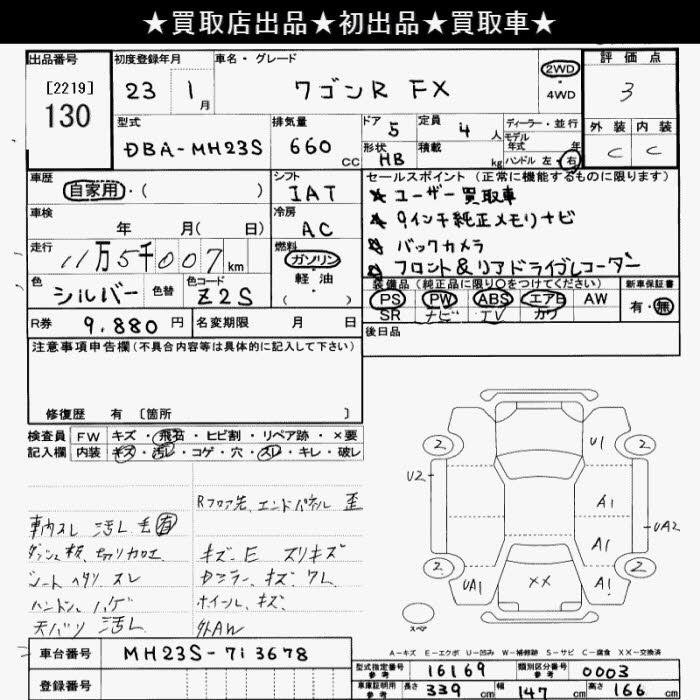 ★買取店出品★初出品★買取車★
出品番号 初度登録年月 車名・グレード 評価点
[2219] 130 23 1月 ワゴンR FX 2WD・4WD 3
型式 排気量 ドア 5 定員 4人 ディーラー・並行
モデル年式 年 外装 内装
DBA-MH23S 660cc 形状 HB 積載 kg ハンドル 左・右 C C
車歴 シフト セールスポイント(正常に機能するものに限ります)
自家用・( ) IAT ★ユーザー買取車
車検 冷房 ★9インチ純正メモリナビ
年 月( 日) AC ★バックカメラ
走行 燃料 ★フロント&リアドライブレコーダー
11万5千007km ガソリン
色 色替 色コード 軽・油 装備品(純正品に限り○をつけてください) 新車保証書
シルバー Z2S ( ) PS PW ABS エアB AW 有・無
SR ナビ TV カワ
R券 9,880円 名変期限 月 日 後日品
注意事項申告欄(不具合内容等は具体的に記入して下さい)
修復歴 有 〔箇所 〕
検査員 FW キズ・飛石・ヒビ割・リペア跡・×要
記入欄 内装 キズ・汚レ・コゲ・穴・スレ・キレ・破レ
Rフロア先、エンドパネル 歪
車内スレ 汚レ
ダッシュ板、切リ加工 キズ-E スリキズ
シートヘタリ スレ
ハンドル ハゲ ホイール、キズ
天バリ 汚レ 外AW
2 U1 2
U2 A1 UA2
A1
2 UA1 ×× A1 2
スペア
A-キズ E-エクボ U-凹み W-補修跡 S-サビ C-腐食 XX-交換済
車台番号 MH23S-713678
型式指定番号 参考 16169 類別区分番号 参考 0003
登録番号 車庫証明用 参考 長さ 339cm 幅 147cm 高さ 166cm